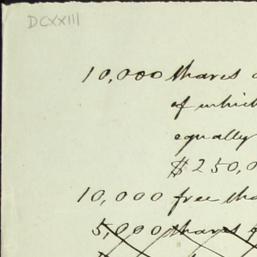 DCXXIII
10,000 shares
of which
equally
$250,0
10,000 free sha
5,000 shares